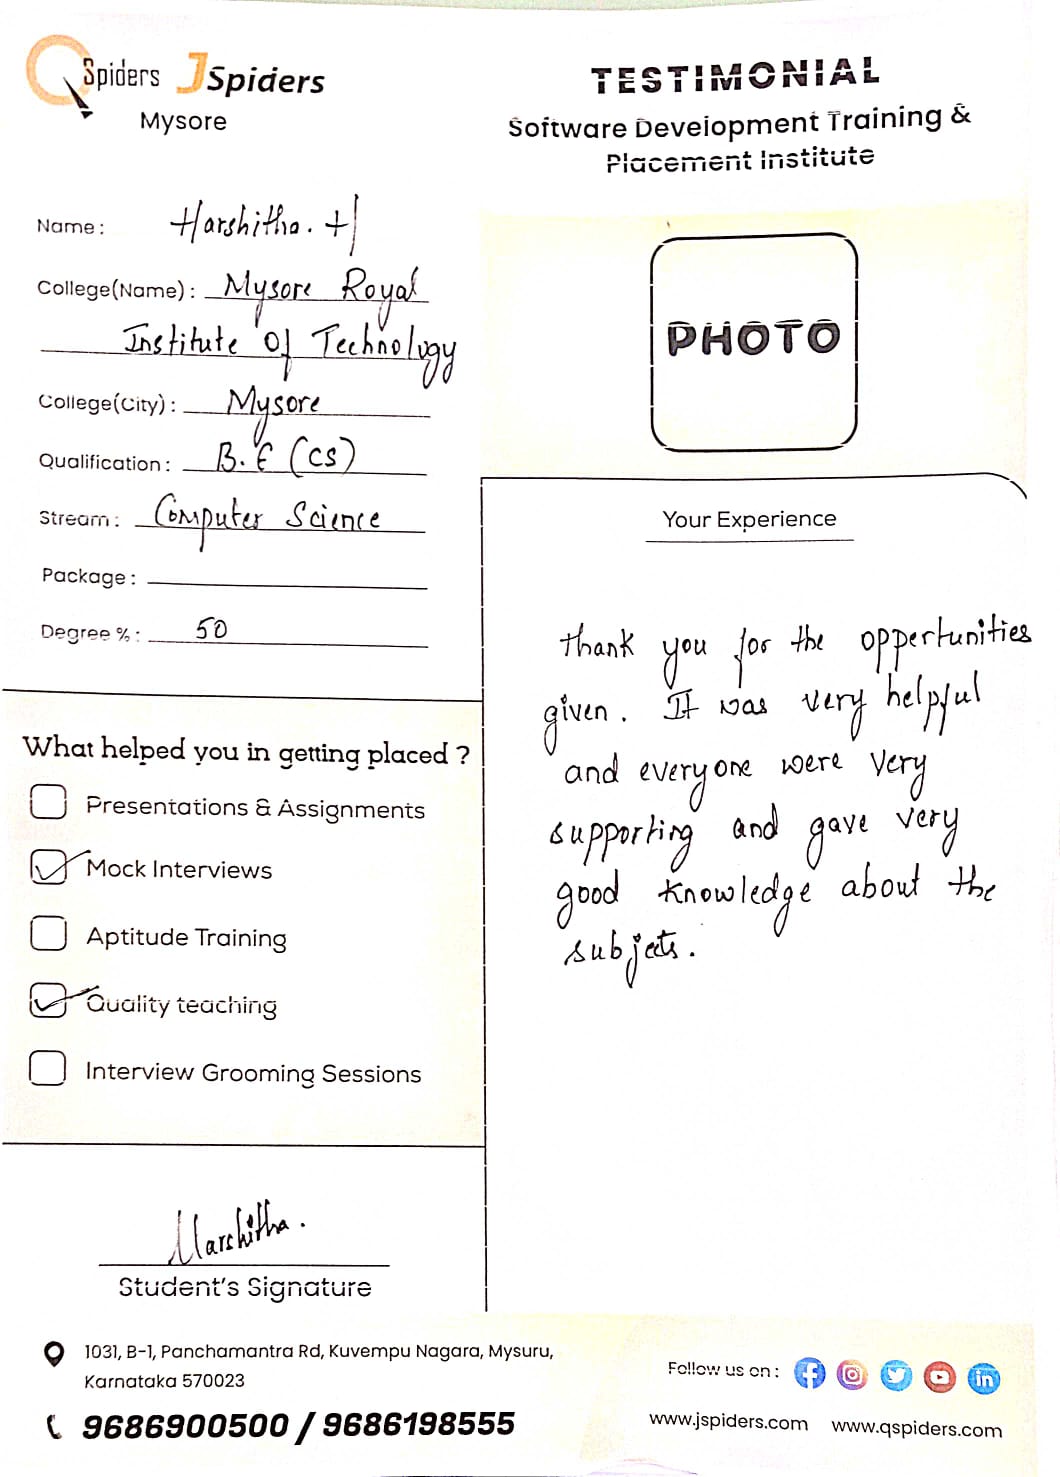 QSpiders JSpiders
Mysore
TESTIMONIAL
Software Development Training &
Placement Institute
Name : Harshitha. H
College(Name) : Mysore Royal
Institute Of Technology
College(City) : Mysore
Qualification : B.E (CS)
Stream : Computer Science
Package :
Degree % : 50
PHOTO
What helped you in getting placed ?
Presentations & Assignments
Mock Interviews
Aptitude Training
Quality teaching
Interview Grooming Sessions
Harshitha.
Student's Signature
Your Experience
thank you for the oppertunities
given. It was very helpful
and everyone were very
supporting and gave very
good knowledge about the
subjects.
1031, B-1, Panchamantra Rd, Kuvempu Nagara, Mysuru,
Karnataka 570023
9686900500 / 9686198555
Follow us on :
www.jspiders.com www.qspiders.com